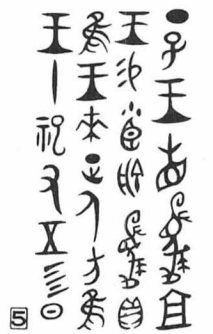 丁巳王省夔且
王易小臣艅夔貝
隹王來正人方隹
王十祀又五肜日
5